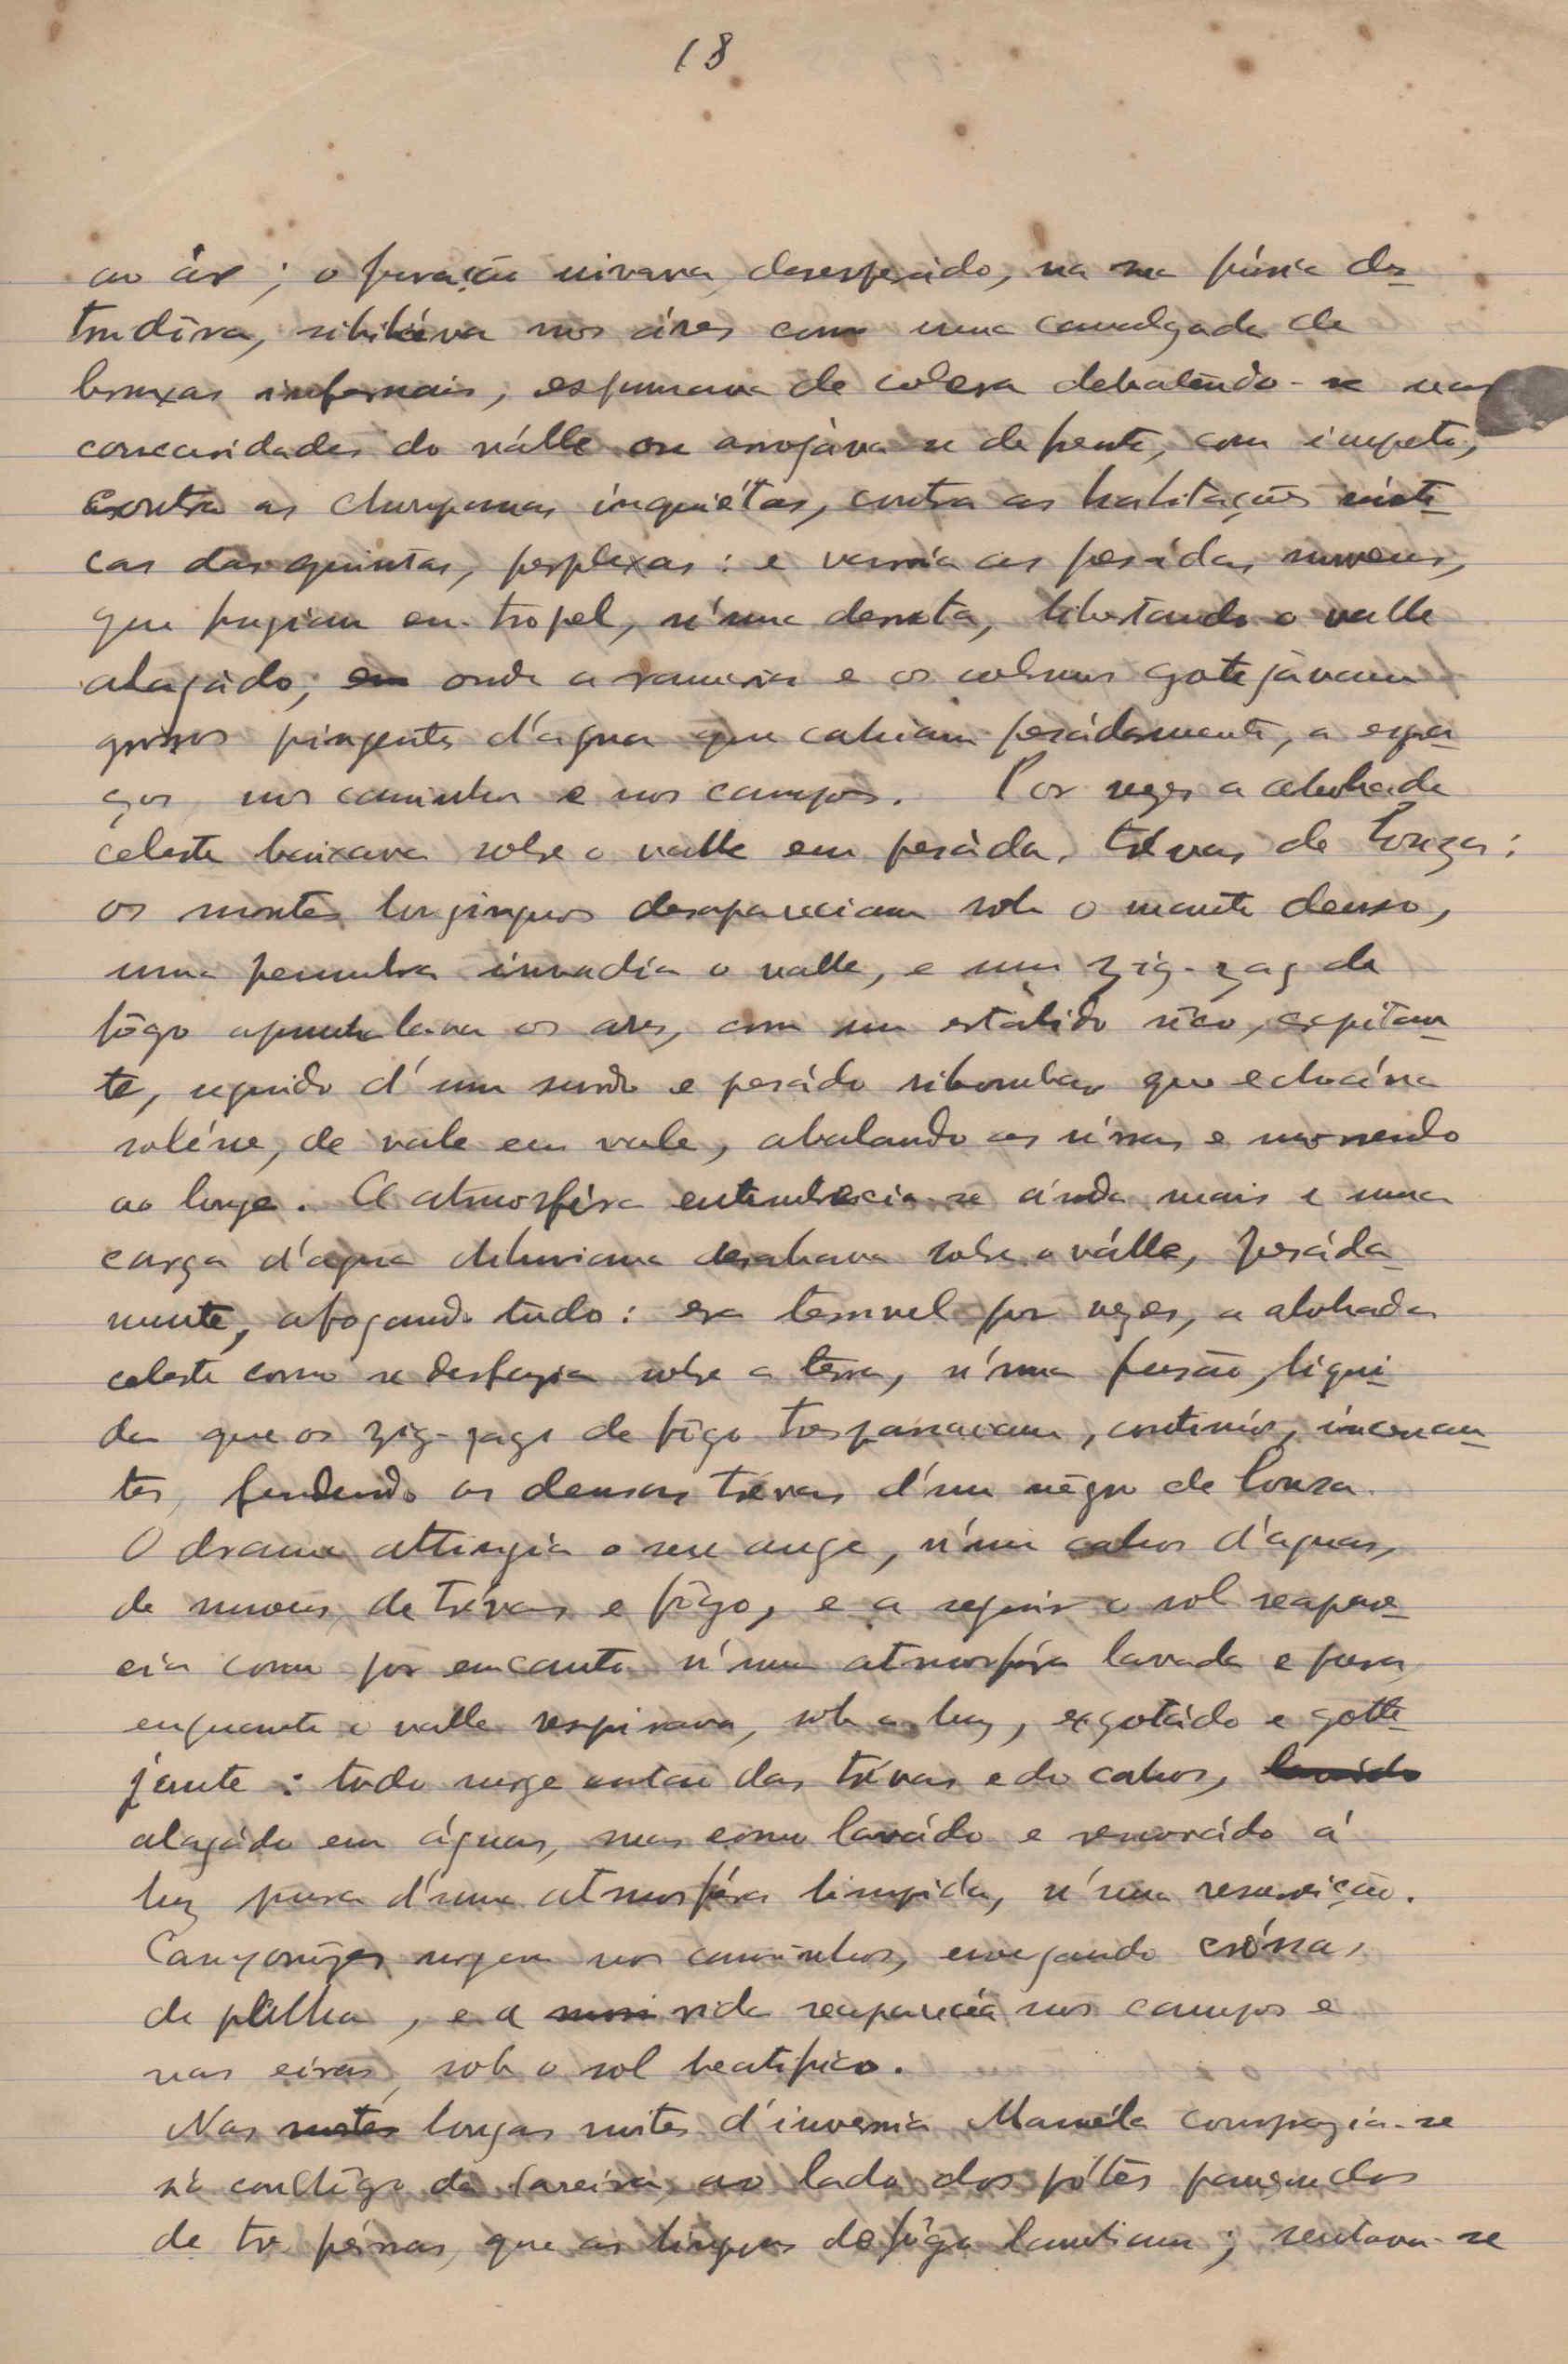 18
ao ár; o furacão uivava, desesperádo, na sua fúria des-
trudíva, sibiláva nos áres como uma cavalgada de
bruxas infernais, espumava de colera debatendo-se nas
concavidades do válle ou arrojáva-se de frente, com impeto,
contra as choupanas inquiétas, contra as habitações rústi-
cas das quintas, perplexas: e varría as pesádas nuvens,
que fugiam em tropel, n'uma derrota, libertando o valle
alagádo; em onde a ramaria e os colmos gotejávam
grossos pingentes d'agua que cahiam pesádamente, a espa-
ços nos caminhos e nos campos. Por vezes a abobada
celeste baixava sobre o valle em pesádas trévas de louza:
os montes longinquos desapareciam sob o manto denso,
uma penumbra invadia o valle, e um zig-zag de
fôgo apunhalava os ares, com um estálido sêco, crepitan-
te, seguido d'um surdo e pesádo ribombar que echoáva
soléne, de vale em vale, abalando as sérras e morrendo
ao longe. A atmosféra entenebrecia-se ainda mais e uma
carga d'agua diluviana desabava sobre o válle, pesáda-
mente, afogando tudo: era terrivel por vezes, a abobada
celeste como se desfazia sobre a terra, n'uma fusão, liqui-
da que os zig-zags de fôgo trespassavam, continuos, incessan-
tes, fendendo as densas trévas d'um nêgro de louza.
O drama attingia o seu auge, n'um cahos d'aguas,
de nuvens, de trévas e fôgo, e a seguir o sol reapare-
cia como por encanto n'uma atmosféra lavada e pura,
enquanto o valle respirava, sob a luz, exgotádo e gotte-
jante: tudo surge então das trévas e do cahos,
alagádo em águas, mas como lavádo e renovádo á
luz pura d'uma atmosféra limpida, n'uma resurreição.
Camponêzes surgem nos caminhos, envergando coróssas
de pálha, e a vida reaparecia nos campos e
nas eiras, sob o sol beatifico.
Nas longas noites d'invernia Manuéla comprazia-se
no conchêgo da lareira, ao lado dos pótes pançudos
de tres pérnas, que as linguas de fôgo lambiam; sentava-se